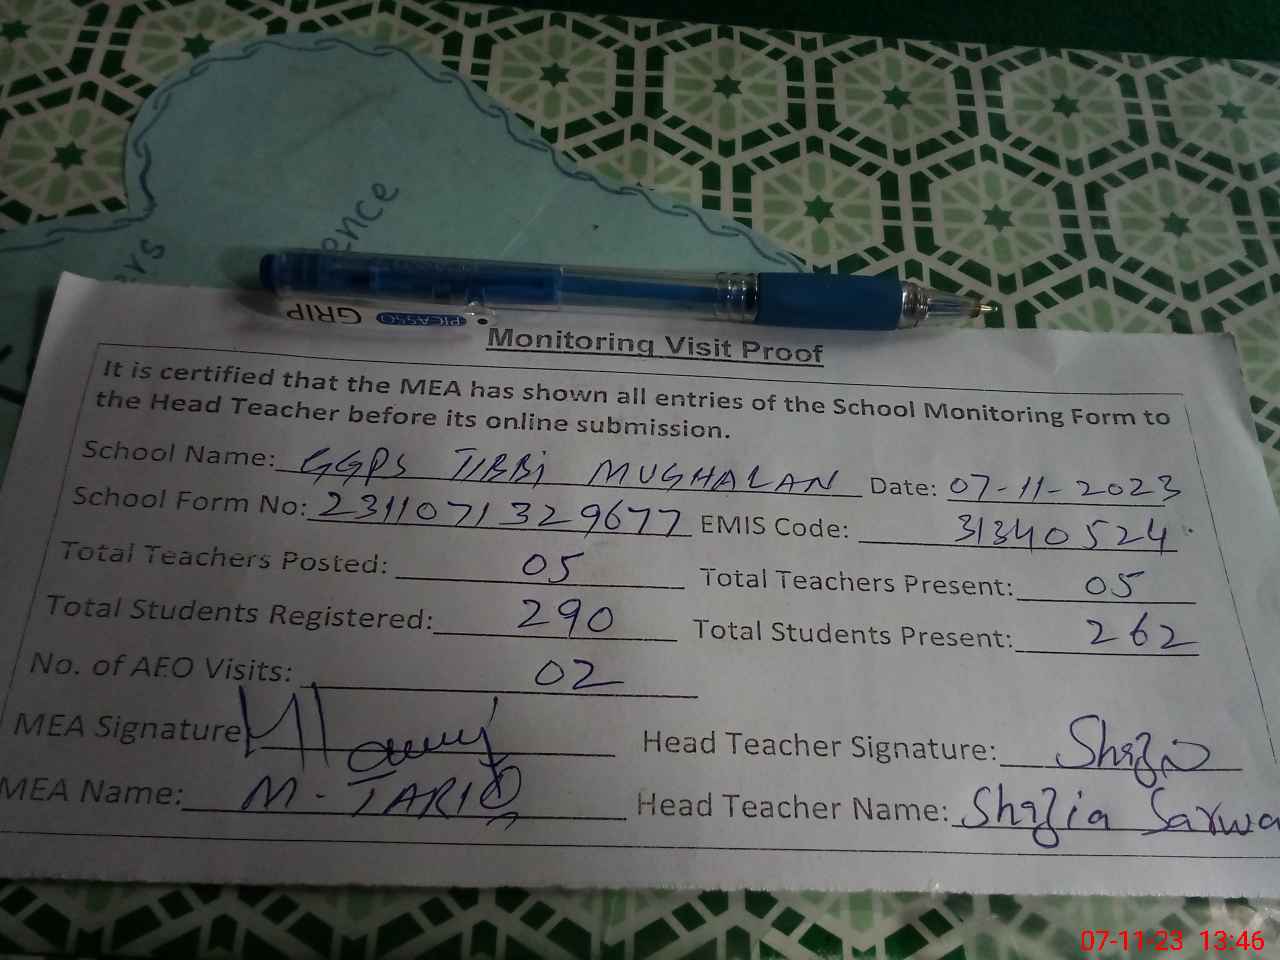 ence
ers
PICASSO GRIP
Monitoring Visit Proof
It is certified that the MEA has shown all entries of the School Monitoring Form to
the Head Teacher before its online submission.
School Name: GGPS TIBBi MUGHALAN Date: 07-11-2023
School Form No: 2311071329677 EMIS Code: 31340524
Total Teachers Posted: 05 Total Teachers Present: 05
Total Students Registered: 290 Total Students Present: 262
No. of AEO Visits: 02
MEA Signature Head Teacher Signature: Shazia
MEA Name: M - TARIQ Head Teacher Name: Shazia Sarwa
07-11-23 13:46